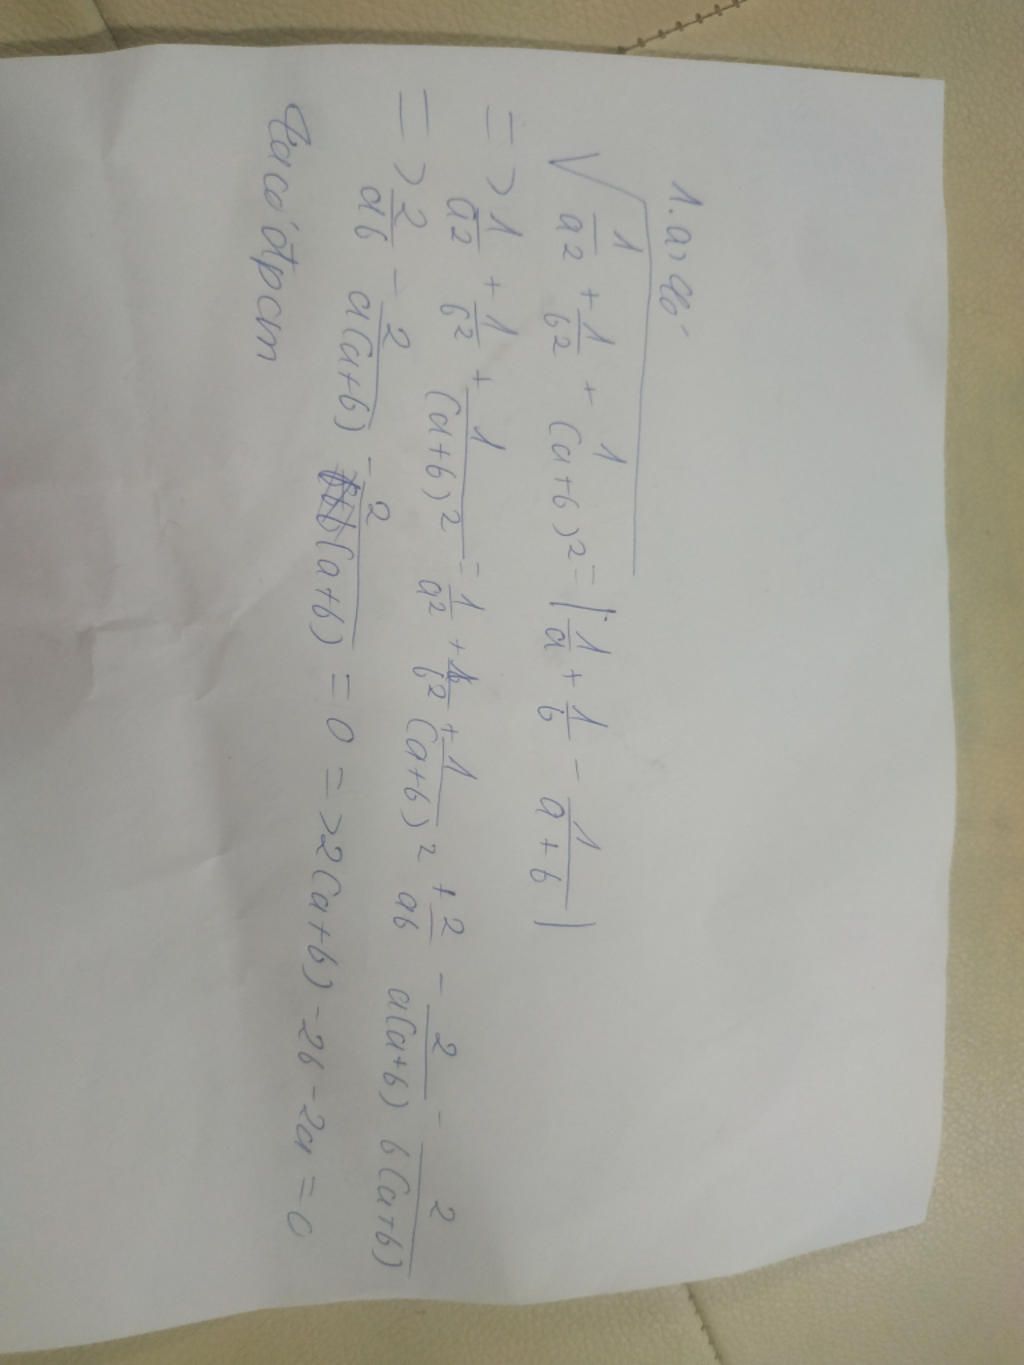 1.
√ 1/a2 + 1/b2 + 1/(a+b)2 = | 1/a + 1/b - 1/a+b |
=> 1/a2 + 1/b2 + 1/(a+b)2 = 1/a2 + 1/b2 + 1/(a+b)2 + 2/ab - 2/a(a+b) - 2/b(a+b)
=> 2/ab - 2/a(a+b) - 2/b(a+b) = 0 => 2(a+b) - 2b - 2a = 0